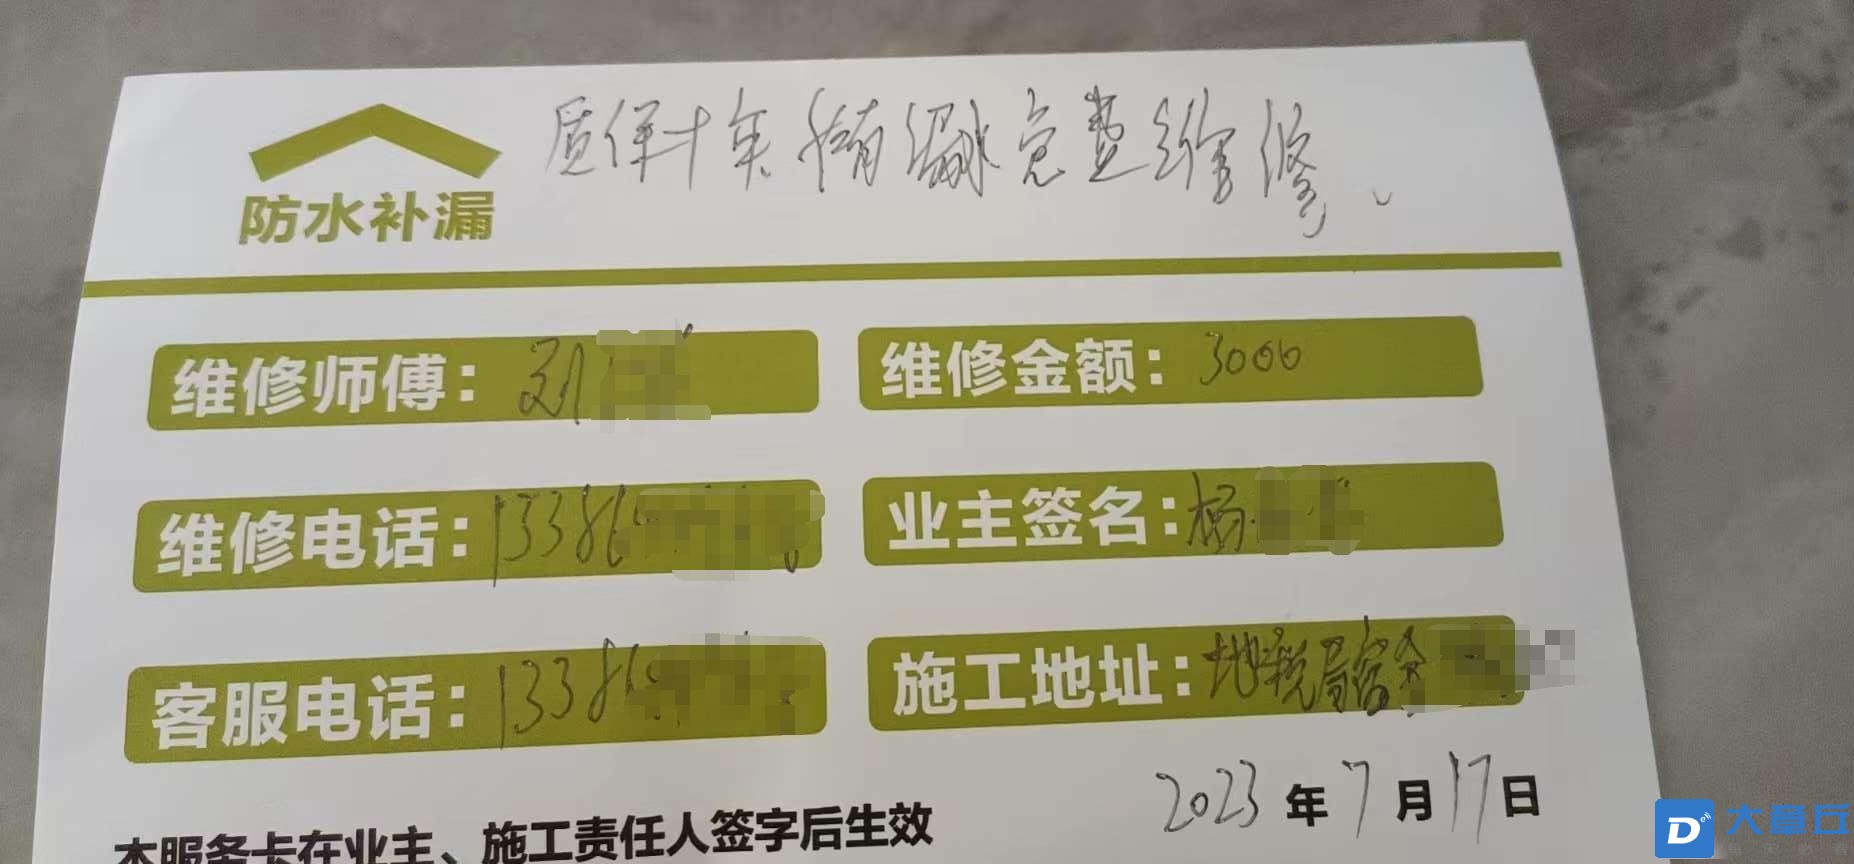 质保十年 情漏水免费维修、
防水补漏
维修师傅：刘
维修金额：3000
维修电话：133869
业主签名：杨
客服电话：133869
施工地址：地税局宿舍
2023年7月17日
本服务卡在业主、施工责任人签字后生效
大鱼丘